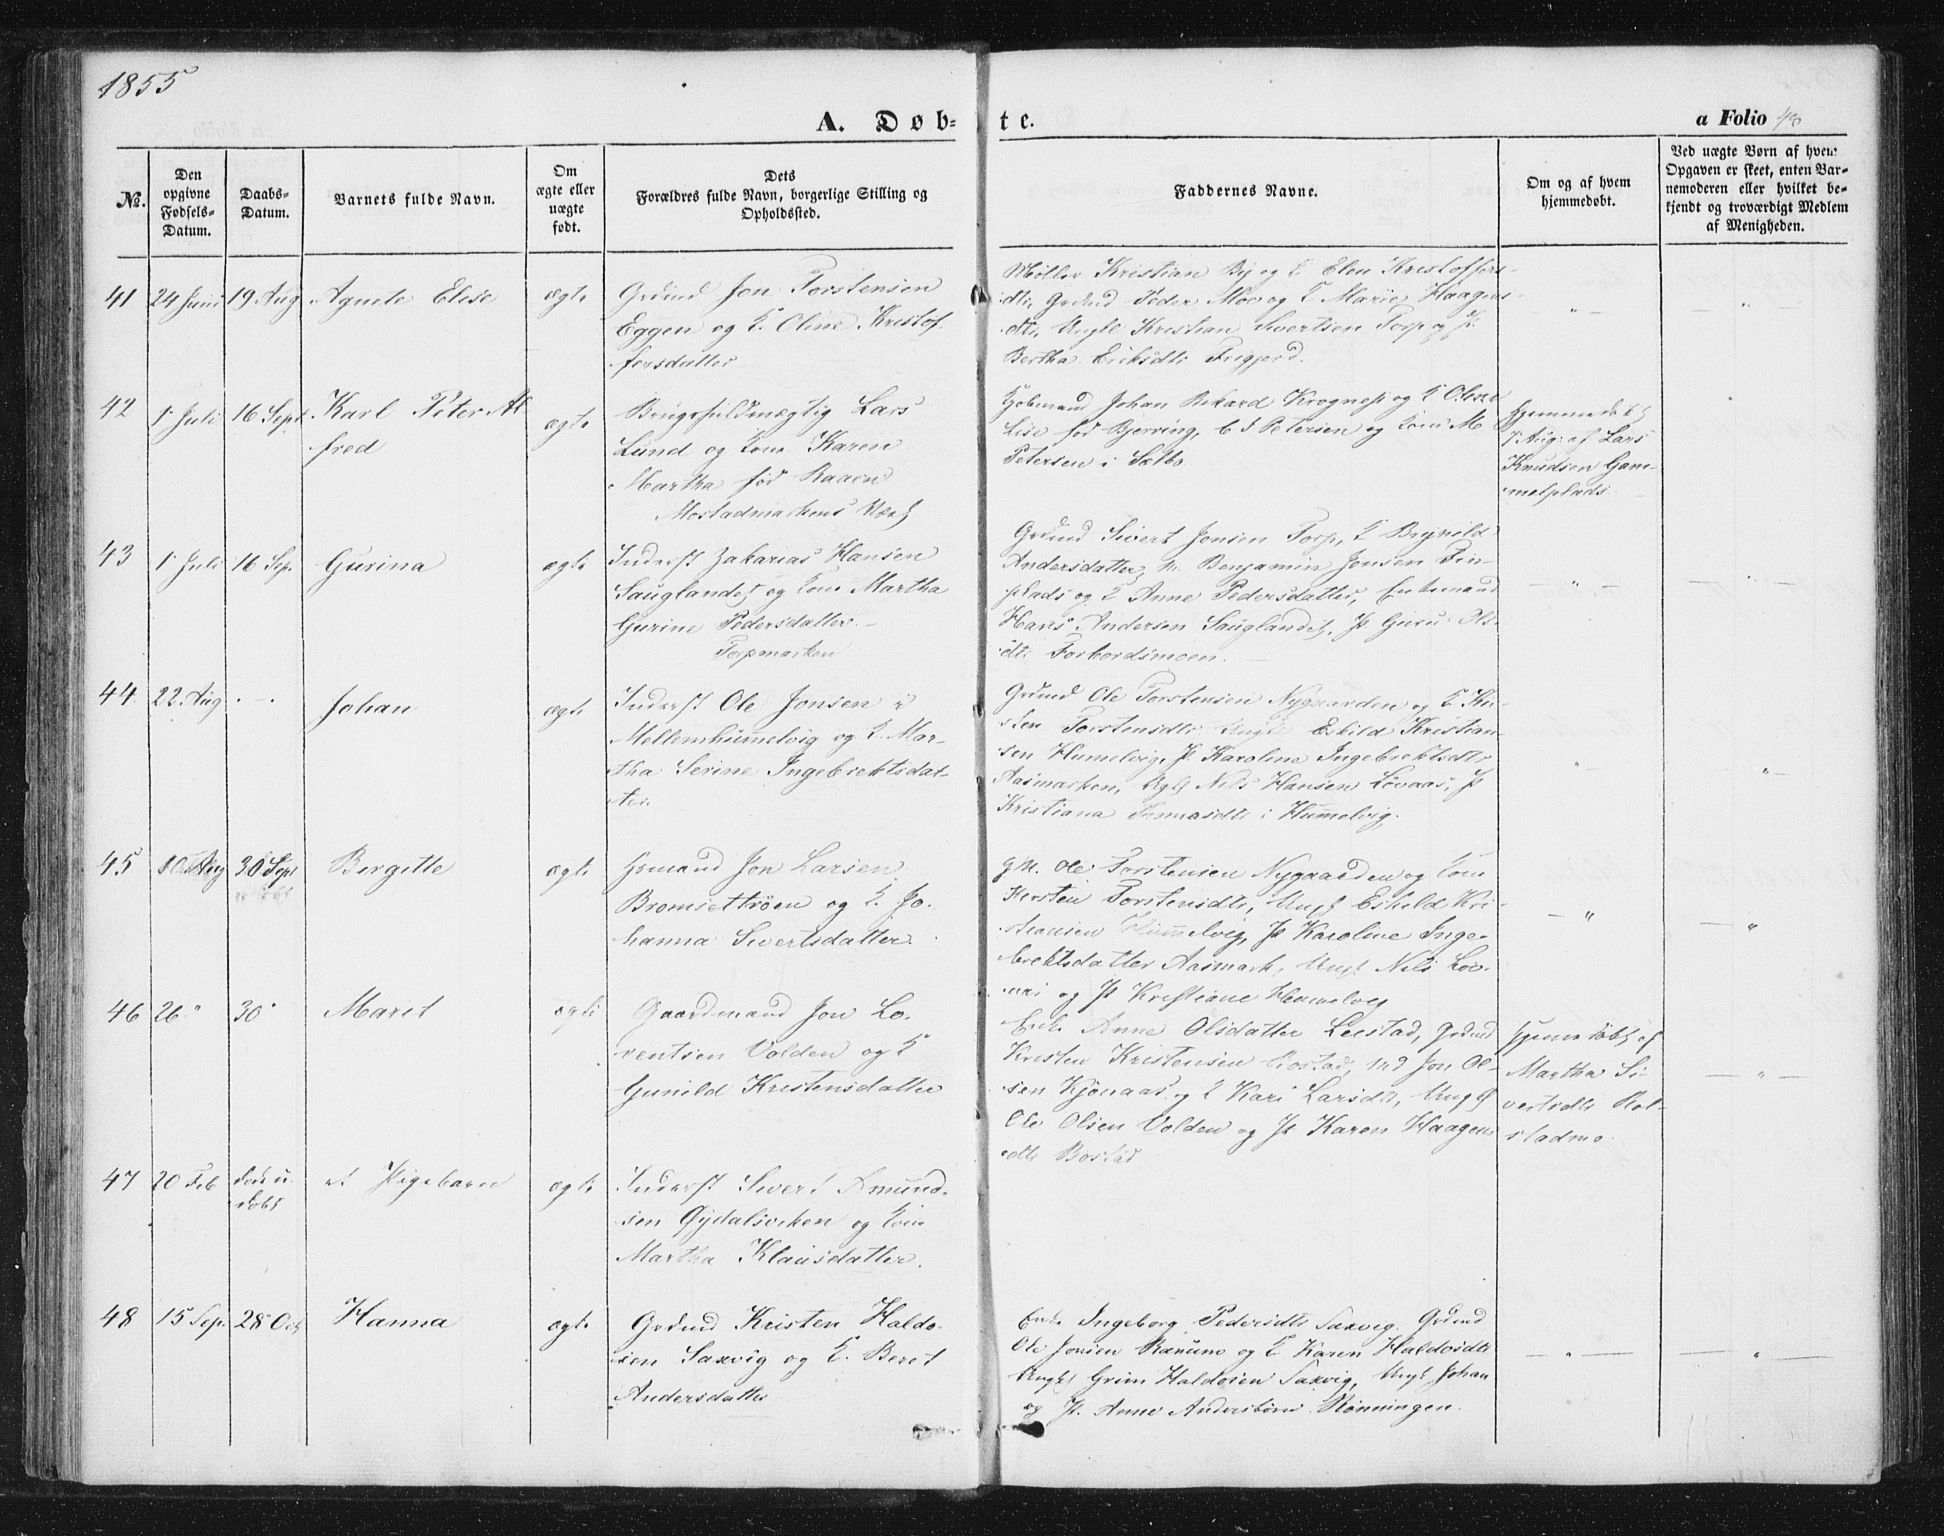 1855
A. Døb-
te.
a Folio 40
№.
Den
opgivne
Fødsels-
Datum.
Daabs-
Datum.
Barnets fulde Navn.
Om
ægte eller
uægte
født.
Dets
Forældres fulde Navn, borgerlige Stilling og
Opholdssted.
Faddernes Navne.
Om og af hvem
hjemmedøbt.
Ved uægte Børn af hvem
Opgaven er skeet, enten Bar-
nemoderen eller hvilket be-
kjendt og troværdigt Medlem
af Menigheden.
41 24 Juni 19 Aug Agnete Elise ægte
Grdmd Jon Torstensen
Eggen og K. Oline Kristof-
fersdatter
Møller Kristian By og K Elen Kristoffers-
dtr, Grdmd Peder Moe og K Marie Haagens-
dtr, Ungkl Kristian Sivertsen Torp og P.
Bertha Eriksdtr
42 1 Juli 16 Sept Karl Peter Al-
fred
ægte
Brugsfuldmægtig Lars
Lund og Kone Karen
Martha fød Raaen
Mostadmarkens Værk
Kjøbmand Johan Rikard Krogness og K Oline
Lise fød Bjerving, C I Petersen og Kone M
Petersen i Sælbo
Hjemmedøbt
7 Aug: af Lars
Knudsen Gam-
melplads
43 1 Juli 16 Sep. Gurina ægte
Inderst Zakarias Hansen
Sauglandet og Kone Martha
Gurine Pedersdatter.
Torpmarken
Grdmd Sivert Jonsen Torp, K Brynild
Andersdatter, Benjamin Jonsen Fin-
plads og K Anne Pedersdatter, Enkemand
Hans Andersen Sauglandet, P. Guru Ols-
dtr Forbordsmoen.
44 22 Aug Johan ægte
Inderst Ole Jonsen i
Mellemhummelvig og K. Mar-
tha Serine Ingebrektsdat-
ter
Grdmd Ole Torstensen Nygaarden og K Kir-
sten Torstensdtr Ungkl Eskild Kristian-
sen Humelvig, P Karoline Ingebrektsdtr
Aasmarken, Ugkl Nils Hansen Lovaas, P
Kristiana Tomasdtr i Humelvig.
45 10 Aug 30 Sept Birgitte ægte
Husmand Jon Larsen
Bromsettrøen og K. Jo-
hanna Sivertsdatter.
G.M. Ole Torstensen Nygaarden og Kone
Kirsten Torstensdtr, Ungk Eskild Kri-
stiansen Hummelvig, P Karoline Inge-
brektsdatter Aasmark, Ungk Nils Lov-
aas og P Kristiane Humelvig
46 26 " 30 " Marit ægte
Gaardmand Jon Lo-
rentsen Volden og K
Gunild Kristensdatter
Enke Anne Olsdatter Leistad, Grdmd
Kristen Kristensen Rostad, Jon Ol-
sen Kjønaas og K Kari Larsdtr, Ungk
Ole Olsen Volden og P Karen Haagens-
dtr Bostad
Hjemmedøbt af
Martha Si-
vertsdtr Rol-
stadmo.
47 20 Feb Døde u-
døbt
et Pigebarn ægte
Inderst Sivert Amund-
sen Gydalsviken og Kone
Martha Klausdatter.
48 15 Sep. 28 Oct Hanna ægte
Grdmd Kristen Haldo-
sen Saxvig og K. Beret
Andersdatter
Enke Ingeborg Pedersdtr Saxvig. Grdmd
Ole Jonsen Ranum og K Karen Haldosdtr
Ungkl Grim Haldosen Saxvig, Ungk Johan
og P. Anne Andersbørn Rønningen.